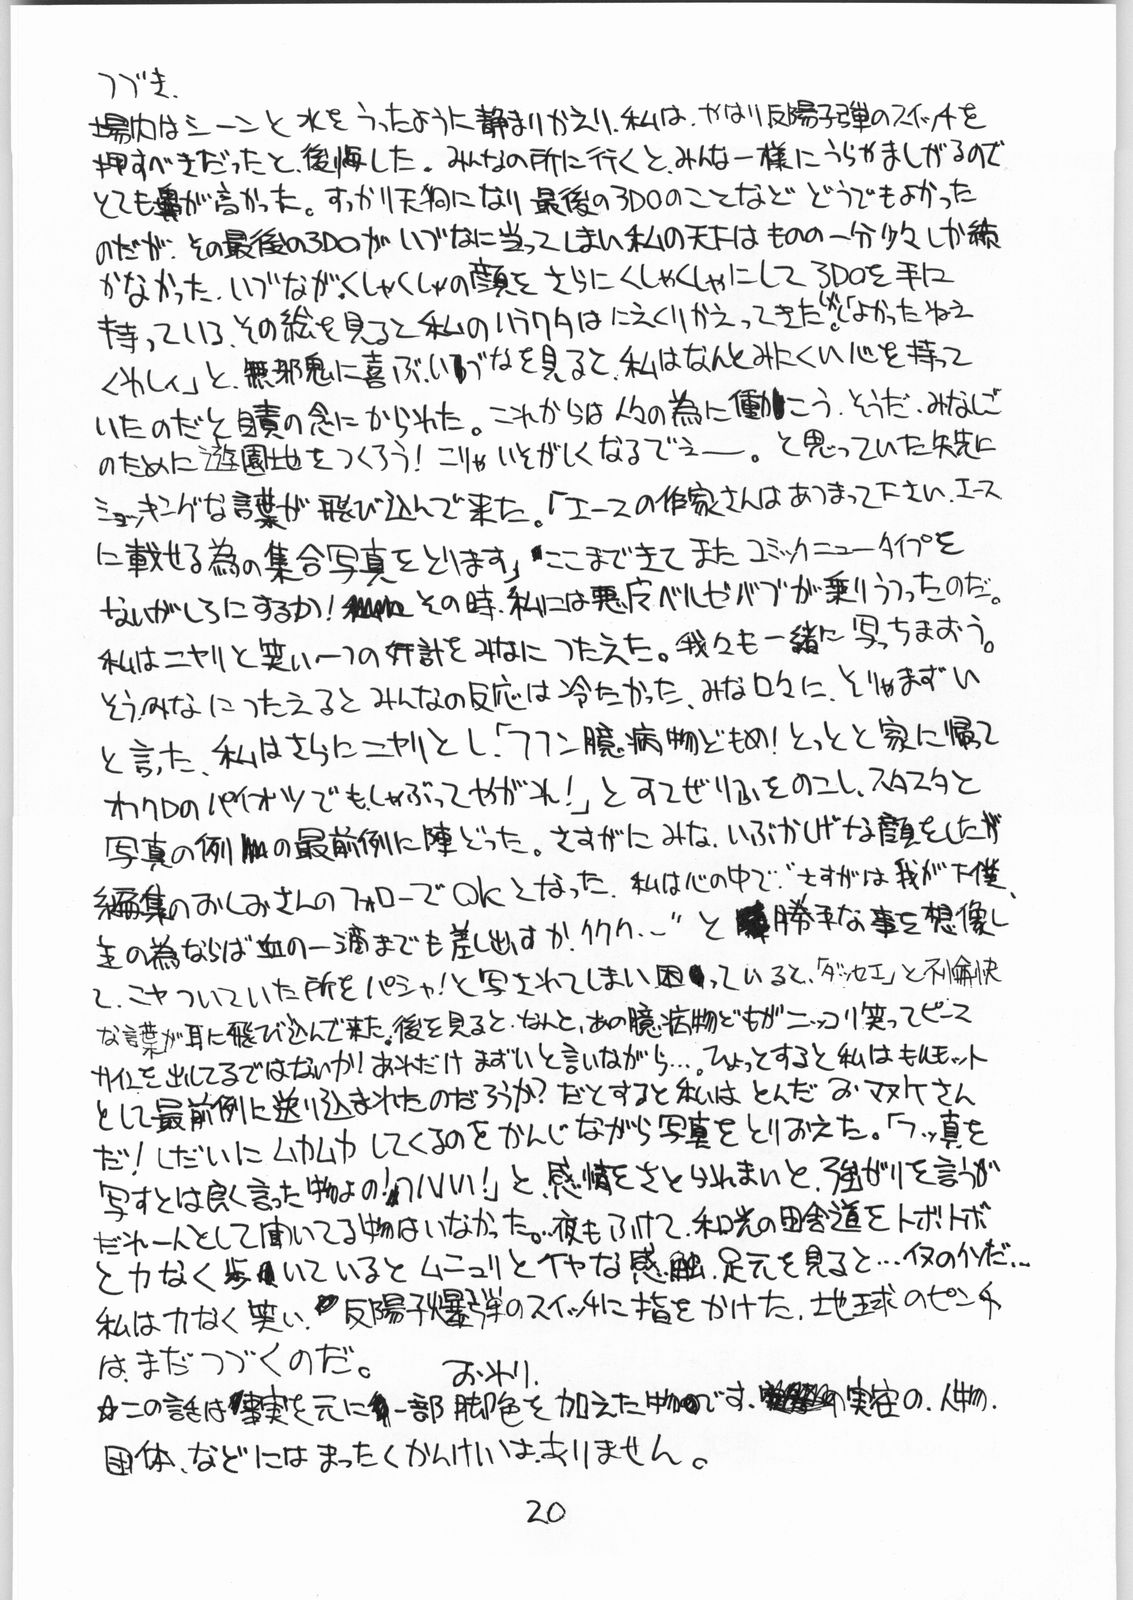 つづき.
場内はシーンと水をうったように静まりかえり.私は.やはり反陽子弾のスイッチを
押すべきだったと、後悔した。みんなの所に行くと、みんな一様にうらやましがるので
とても鼻が高かった。すっかり天狗になり最後の3DOのことなどどうでもよかった
のだが、その最後の3DOがいづなに当ってしまい私の天下はものの一分少々しか続
かなかった、いづなが、くしゃくしゃの顔をさらにくしゃくしゃにして3DOを手に
持っている、その絵を見ると私のハラワタはにえくりかえってきたが。「よかったねえ
くわしィ」と、無邪鬼に喜ぶ、いづなを見ると、私はなんとみにくい心を持って
いたのだと自責の念にかられた。これからは人々の為に働こう、そうだ、みなしご
のために遊園地をつくろう!こりゃいそがしくなるでえー。と思っていた矢先に
ショッキングな言葉が飛び込んで来た。「エースの作家さんはあつまって下さい、エース
に載せる為の集合写真をとります」ここまできてまたコミックニュータイプを
ないがしろにするか!その時、私には悪魔ベルゼバブが乗りうつったのだ。
私はニヤリと笑い一つの奸計をみなにつたえた。我々も一緒に写っちまおう。
そうみなにつたえるとみんなの反応は冷たかった、みな口々に、そりゃまずい
と言った、私はさらにニヤリとし、「フフン臆病物どもめ!とっとと家に帰って
オフクロのパイオツでも、しゃぶってやがれ!」とすてぜりふをのこし、スタスタと
写真の例の最前例に陣どった。さすがにみな、いぶかしげな顔をしたが
編集のおしおさんのフォローでOKとなった、私は心の中で、“さすがは我が下僕、
主の為ならば血の一滴までも差し出すか、ククク…”と勝手な事を想像し
て、ニヤついていた所をパシャ!と写されてしまい、困っていると、「ダッセエ」と不愉快
な言葉が耳に飛び込んで来た。後を見ると、なんと、あの臆病物どもがニッコリ笑ってピース
サインを出してるではないか!あれだけまずいと言いながら…。ひょっとすると私はもルモット
として最前例に送り込まれたのだろうか?だとすると私はとんだおマヌケさん
だ!しだいにムカムカしてくるのをかんじながら写真をとりおえた。「フッ真を
写すとは良く言った物よの!ワハハ!」と、感情をさとられまいと、強がりを言うが
だれ一人として聞いてる物はいなかった。夜もふけて、和光の田舎道をトボトボ
と力なく歩いているとムニュリとイヤな感触、足元を見ると…イヌのクソだ…
私は力なく笑い、反陽子爆弾のスイッチに指をかけた、地球のピンチ
は、まだつづくのだ。
おわり.
☆この話は事実を元に一部脚色を加えた物です、実在の、人物、
団体、などにはまったくかんけいは、ありません。
20